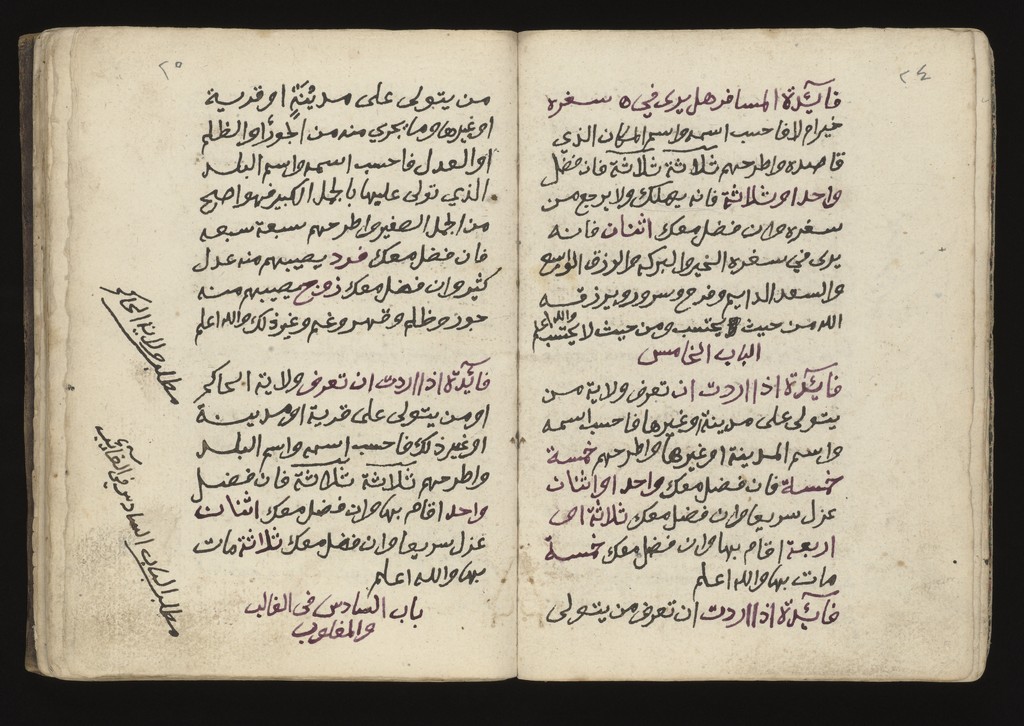 ٢٤
فايدة المسافر هل يرى في ه سفره
خيرام لا فاحسب اسمه واسم المكان الذي
قاصده واطرحهم ثلاثة ثلاثة فان فضل
واحد او ثلاثة فانه يهلك ولا يرجع من
سفره وان فضل معك اثنان فانه
يرى في سفره الخير والبركه والرزق الوسع
والسعد الدايم وفرح وسرور ويرزقه
الله من حيث يحتسب ومن حيث لا يحتسب والله اعلم
الباب الخامس
فايدة اذا اردت ان تعرف ولاية من
يتولى على مدينة او غيرها فاحسب اسمه
واسم المدينة او غيرها واطرحهم خمسة
خمسة فان فضل معك واحد او اثنان
عزل سريعا وان فضل معك ثلاثة او
اربعة اقام بها وان فضل معك خمسة
مات بها والله اعلم
فايدة اذا اردت ان تعرف من يتولى
٢٥
من يتولى على مدينة او قرية
او غيرها وما يجري منه من الجور او الظلم
او العدل فاحسب اسمه واسم البلد
الذي تولى عليها بالجمل الكبير فهو اصح
من الجمل الصغير واطرحهم سبعة سبعه
فان فضل معك فرد يصيبهم منه عدل
كثير وان فضل معك زوج يصيبهم منه
جور وظلم وقهر وغم وغير ذلك والله اعلم
فايدة اذا اردت ان تعرف ولاية الحاكم
او من يتولى على قرية او مدينة
او غير ذلك فاحسب اسمه واسم البلد
واطرحهم ثلاثة ثلاثة فان فضل
واحد اقام بها وان فضل معك اثنان
عزل سريعا وان فضل معك ثلاثة مات
بها والله اعلم
باب السادس في الغالب
والمغلوب
مطلب ولاية الحاكم
مطلب الباب السادس في الغالب